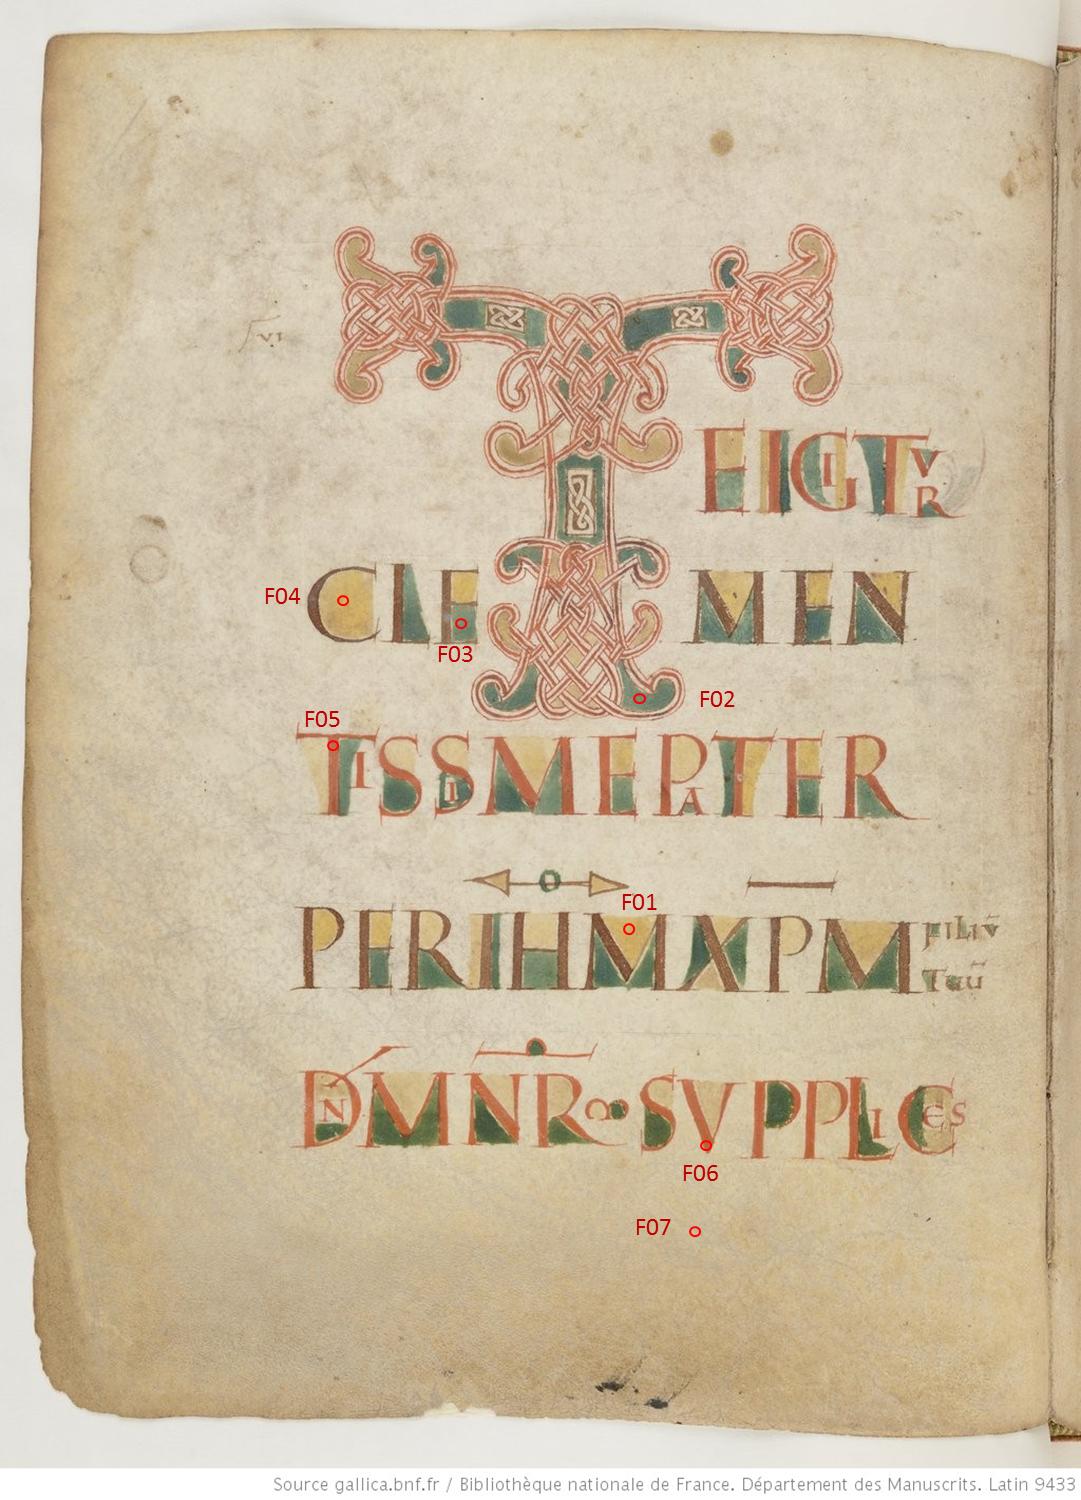 VI
T
EIGITVR
CLEMEN
TISSIMEPATER
PERIHMXPM FILIŪ TUŪ
DNMNR SVPPLICES
F01
F02
F03
F04
F05
F06
F07
Source gallica.bnf.fr / Bibliothèque nationale de France. Département des Manuscrits. Latin 9433